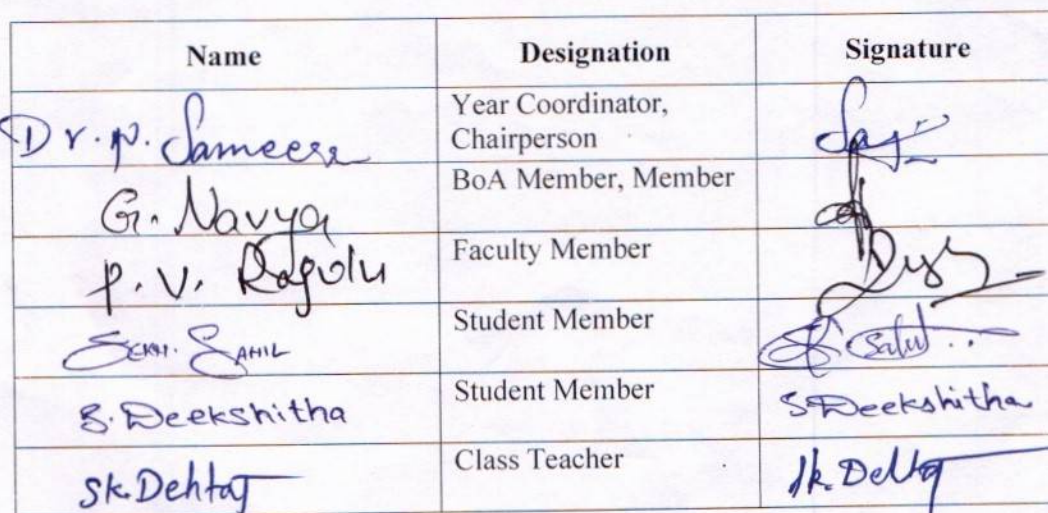 Name Designation Signature
Dr. P. Sameera Year Coordinator,
Chairperson
G. Navya BoA Member, Member
P. V. Ragolu Faculty Member
Student Member
S. Deekshitha Student Member S. Deekshitha
Sk. Dehtaj Class Teacher Sk. Dehtaj